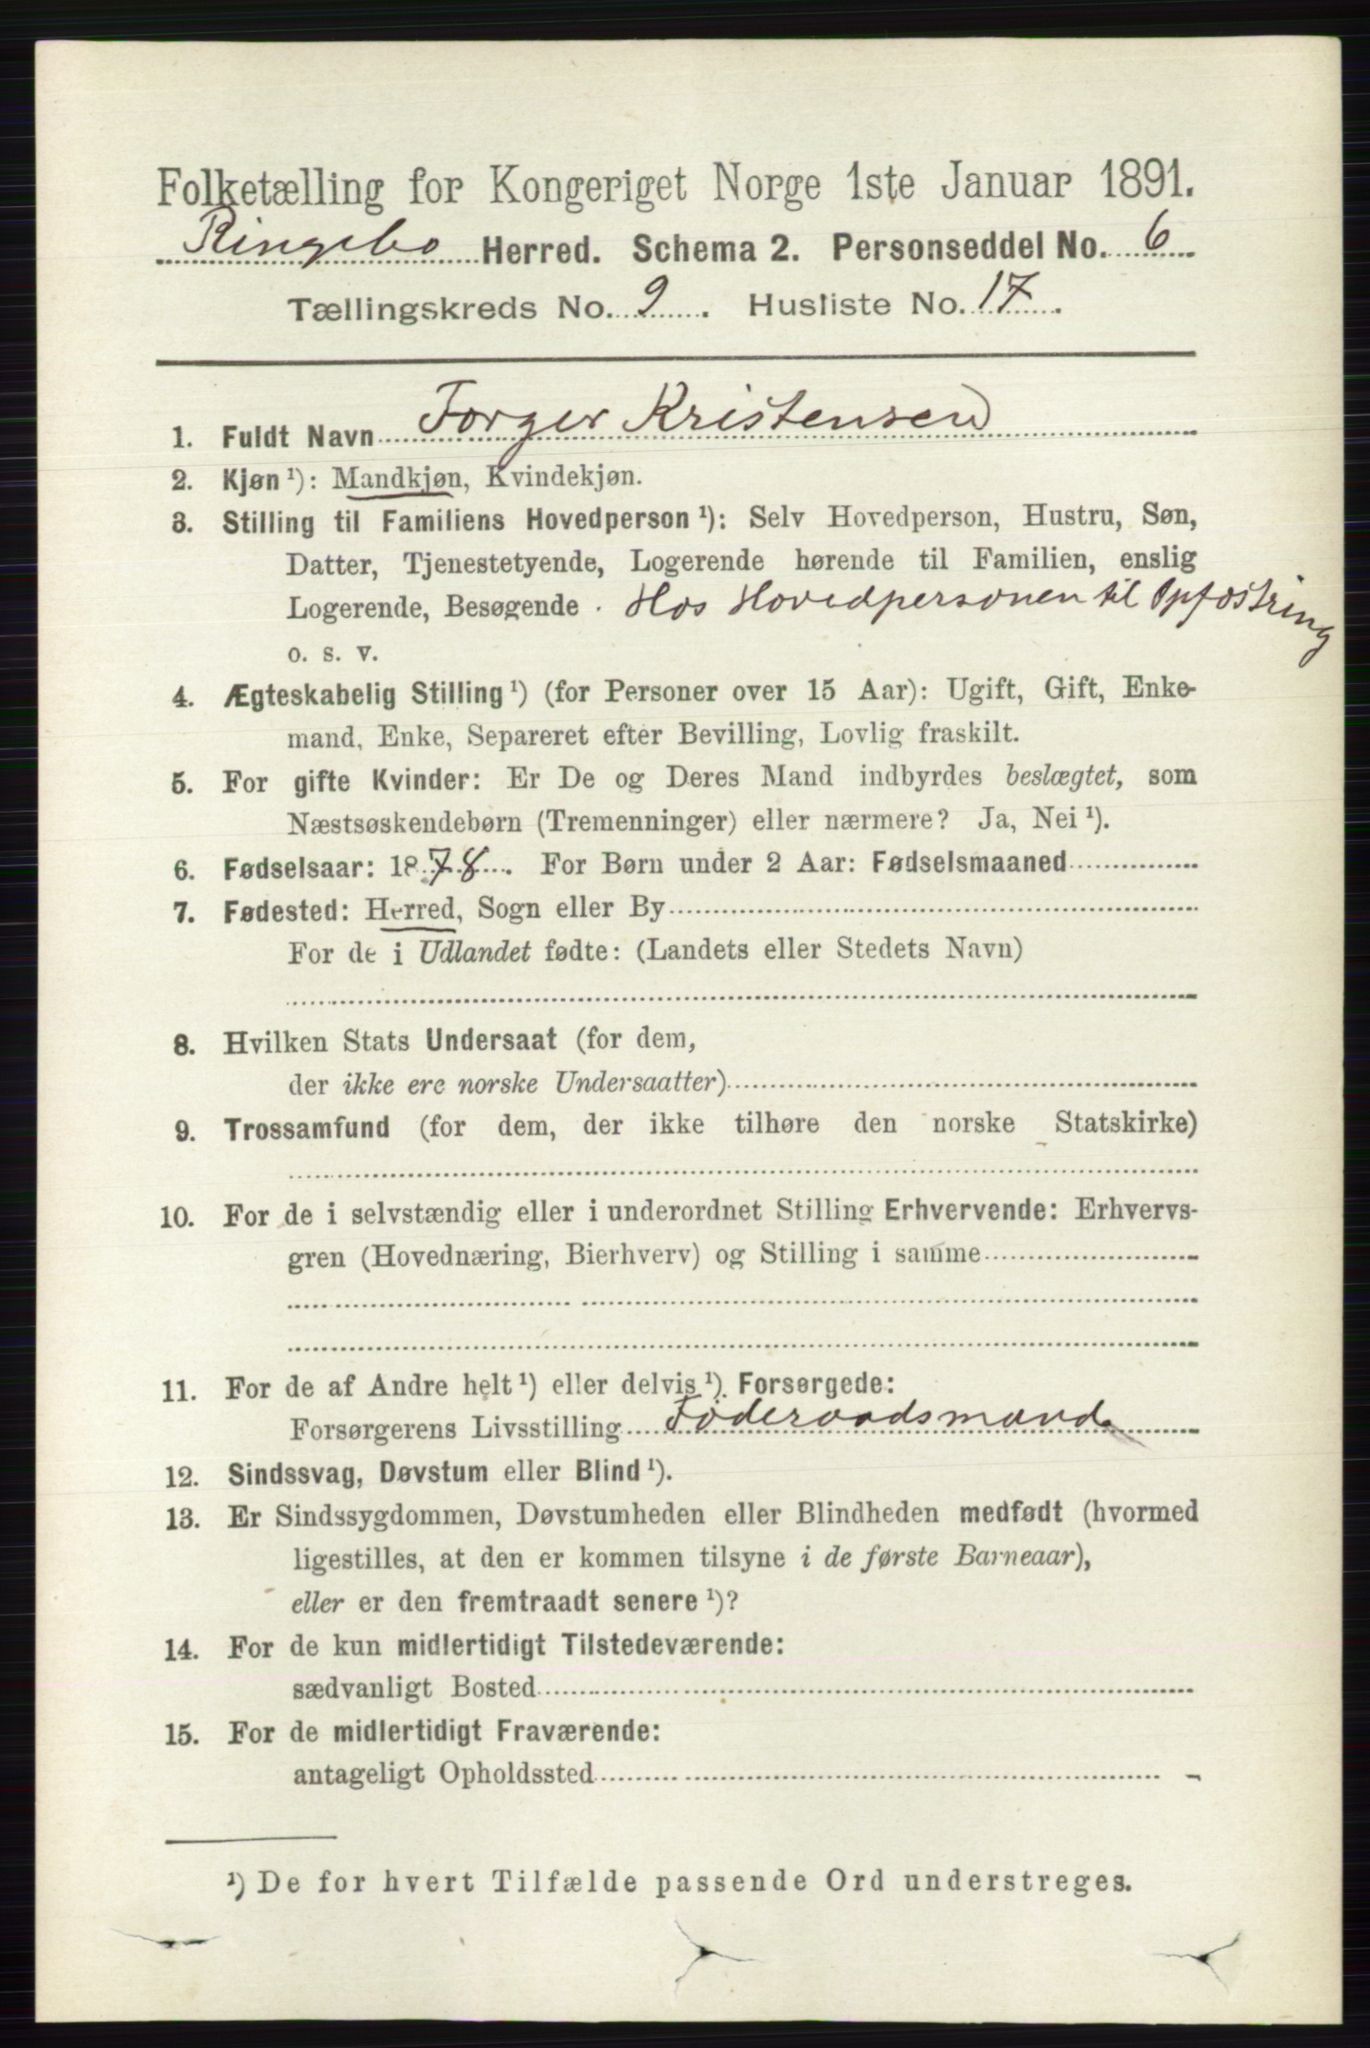 Folketælling for Kongeriget Norge 1ste Januar 1891.
Ringebo Herred. Schema 2. Personseddel No. 6
Tællingskreds No. 9. Husliste No. 17.
1. Fuldt Navn Torger Kristensen
2. Kjøn ¹): Mandkjøn, Kvindekjøn.
3. Stilling til Familiens Hovedperson ¹): Selv Hovedperson, Hustru, Søn,
Datter, Tjenestetyende, Logerende hørende til Familien, enslig
Logerende, Besøgende . Hos Hovedpersonen til Opfostring
o. s. v.
4. Ægteskabelig Stilling ¹) (for Personer over 15 Aar): Ugift, Gift, Enke-
mand, Enke, Separeret efter Bevilling, Lovlig fraskilt.
5. For gifte Kvinder: Er De og Deres Mand indbyrdes beslægtet, som
Næstsøskendebørn (Tremenninger) eller nærmere? Ja, Nei ¹).
6. Fødselsaar: 1878. For Børn under 2 Aar: Fødselsmaaned
7. Fødested: Herred, Sogn eller By
For de i Udlandet fødte: (Landets eller Stedets Navn)
8. Hvilken Stats Undersaat (for dem,
der ikke ere norske Undersaatter)
9. Trossamfund (for dem, der ikke tilhøre den norske Statskirke)
10. For de i selvstændig eller i underordnet Stilling Erhvervende: Erhvervs-
gren (Hovednæring, Bierhverv) og Stilling i samme
11. For de af Andre helt ¹) eller delvis ¹) Forsørgede:
Forsørgerens Livsstilling Føderaadsmand
12. Sindssvag, Døvstum eller Blind ¹).
13. Er Sindssygdommen, Døvstumheden eller Blindheden medfødt (hvormed
ligestilles, at den er kommen tilsyne i de første Barneaar),
eller er den fremtraadt senere ¹)?
14. For de kun midlertidigt Tilstedeværende:
sædvanligt Bosted
15. For de midlertidigt Fraværende:
antageligt Opholdssted
¹) De for hvert Tilfælde passende Ord understreges.